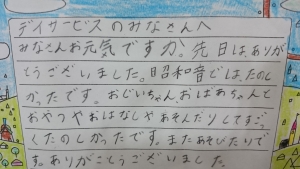 デイサービスのみなさんへ
みなさんお元気ですか、先日は、ありが
とうございました。昭和音では、たのし
かったです。おじいちゃん、おばあちゃんと
おやつやおはなしやあそんだりしてすごく
したのしかったです。またあそびたいで
す。ありがとうございました。